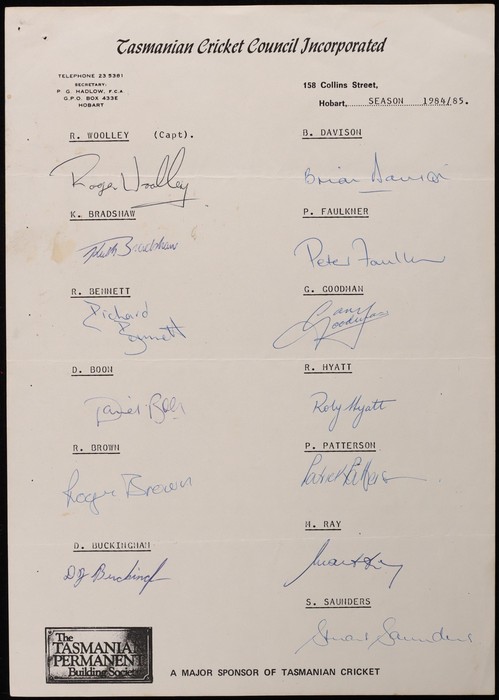 Tasmanian Cricket Council Incorporated
TELEPHONE 23 5381
SECRETARY:
P. G. HADLOW, F.C.A
G.P.O. BOX 433E
HOBART
158 Collins Street,
Hobart, SEASON 1984/85.
R. WOOLLEY (Capt).
Roger Woolley
K. BRADSHAW
Keith Bradshaw
R. BENNETT
Richard
Bennett
D. BOON
David Boon
R. BROWN
Roger Brown
D. BUCKINGHAM
D J Buckingham
B. DAVISON
Brian Davison
P. FAULKNER
Peter Faulkner
G. GOODMAN
Gary
Goodman
R. HYATT
Roly Hyatt
P. PATTERSON
Patrick Patterson
M. RAY
Mark Ray
S. SAUNDERS
Stuart Saunders
The
TASMANIAN
PERMANENT
Building Society
A MAJOR SPONSOR OF TASMANIAN CRICKET